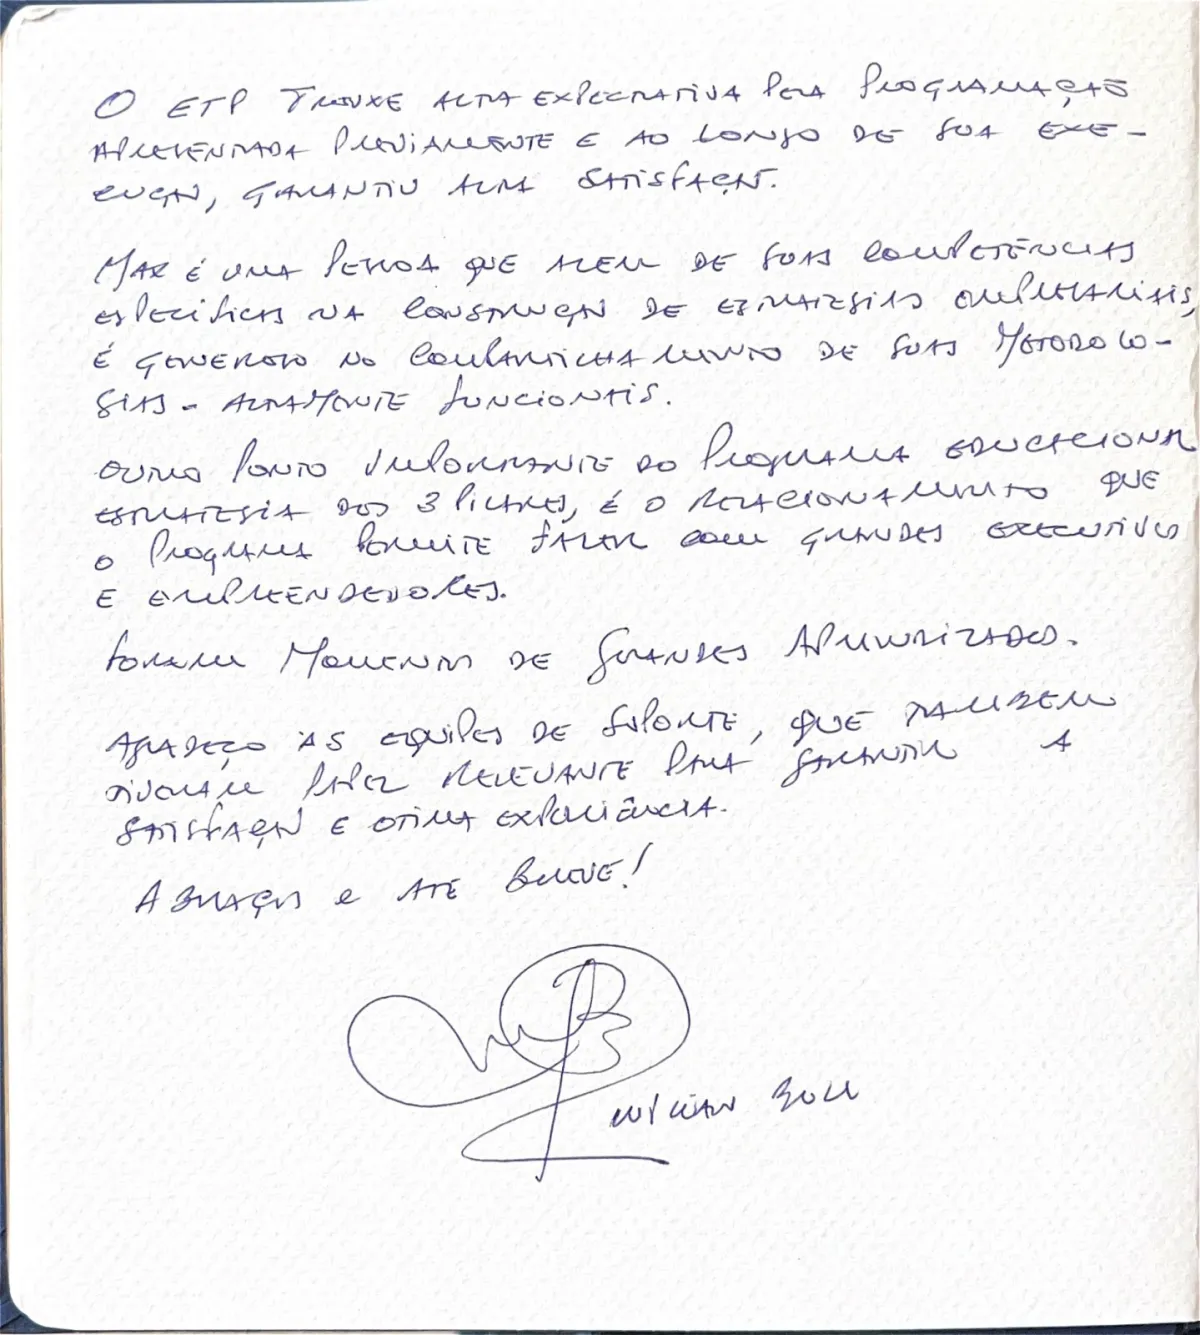 O ETP TROUXE ALTA EXPECTATIVA PELA PROGRAMAÇÃO
APRESENTADA PREVIAMENTE E AO LONGO DE SUA EXE-
CUÇÃO, GARANTIU ALTA SATISFAÇÃO.
MAX É UMA PESSOA QUE ALEM DE SUAS COMPETÊNCIAS
ESPECIFICAS NA CONSTRUÇÃO DE ESTRATEGIAS EMPRESARIAIS,
É GENEROSO NO COMPARTILHAMENTO DE SUAS METODOLO-
GIAS - ALTAMENTE FUNCIONAIS.
OUTRO PONTO IMPORTANTE DO PROGRAMA EDUCACIONAL
ESTRATEGIA DOS 3 PILARES, É O RELACIONAMENTO QUE
O PROGRAMA PERMITE FAZER COM GRANDES EXECUTIVOS
E EMPREENDEDORES.
FORAM MOMENTOS DE GRANDES APRENDIZADOS.
AGRADEÇO AS EQUIPES DE SUPORTE, QUE TAMBEM
TIVERAM PAPEL RELEVANTE PARA GARANTIR A
SATISFAÇÃO E OTIMA EXPERIÊNCIA.
ABRAÇOS e ATÉ BREVE!
WILLIAN